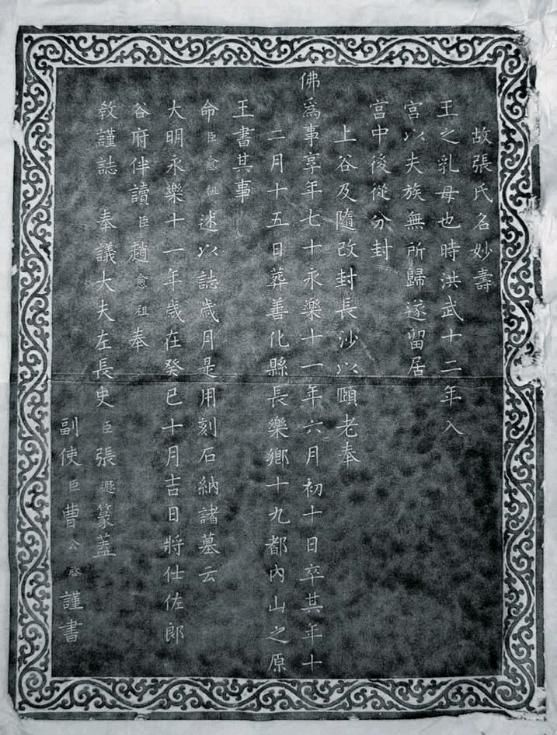 故張氏名妙壽
王之乳母也時洪武十二年入
宮以夫族無所歸遂留居
宮中後從分封
上谷及隨改封長沙以頤老奉
佛為事享年七十永樂十一年六月初十日卒其年十
二月十五日葬善化縣長樂鄉十九都內山之原
王書其事
命臣愈祖述以誌歲月是用刻石納諸墓云
大明永樂十一年歲在癸巳十月吉日將仕佐郎
谷府伴讀臣趙愈祖奉
教謹誌 奉議大夫左長史臣張遜篆蓋
副使臣曹公啟謹書